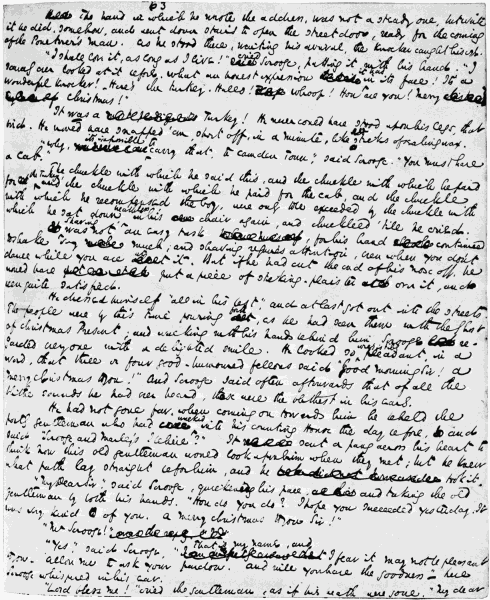 63
The hand in which he wrote the address, was not a steady one, but write
it he did, somehow, and went down stairs to open the street door, ready for the coming
of the Poulterer's man. As he stood there, waiting his arrival, the knocker caught his eye.
"I shall love it, as long as I live!" cried Scrooge, patting it with his hand. "I
scarcely ever looked at it before. What an honest expression it has in its face. It's a
wonderful knocker! Here's the turkey. Hallo! Whoop! How are you! Merry
Christmas!"
It was a Turkey! He never could have stood upon his legs, that
bird. He would have snapped 'em short off, in a minute, like sticks of sealing wax.
"Why, it's impossible to carry that to Camden Town," said Scrooge. "You must have
a cab."
The chuckle with which he said this, and the chuckle with which he paid
for the Turkey, and the chuckle with which he paid for the cab, and the chuckle
with which he recompensed the boy, were only to be exceeded by the chuckle with
which he sat down breathless in his chair again, and chuckled 'till he cried.
Shaving was not an easy task, for his hand continued
to shake very much; and shaving requires attention, even when you don't
dance while you are at it. But if he had cut the end of his nose off, he
would have put a piece of sticking-plaister on it, and
been quite satisfied.
He dressed himself "all in his best", and at last got out into the streets.
The people were by this time pouring forth, as he had seen them with the Ghost
of Christmas Present; and walking with his hands behind him, Scrooge re-
garded every one with a delighted smile. He looked so pleasant, in a
word, that three or four good-humoured fellows said "Good morning Sir! A
merry Christmas to you!" And Scrooge said often afterwards that of all the
blithe sounds he had ever heard, those were the blithest in his ears.
He had not gone far, when coming on towards him he beheld the
portly gentleman who had walked into his counting House the day before, and
said "Scrooge and Marley's I believe?" It sent a pang across his heart to
think how this old gentleman would look upon him when they met; but he knew
what path lay straight before him, and he took it.
"My dear Sir," said Scrooge, quickening his pace, and taking the old
gentleman by both his hands. "How do you do? I hope you succeeded yesterday. It
was very kind of you. A merry Christmas to you Sir!"
"Mr Scrooge?"
"Yes," said Scrooge. "That is my name, and I fear it may not be pleasant
to you. Allow me to ask your pardon. And will you have the goodness" – here
Scrooge whispered in his ear.
"Lord bless me!" cried the gentleman, as if his breath were gone. "My dear